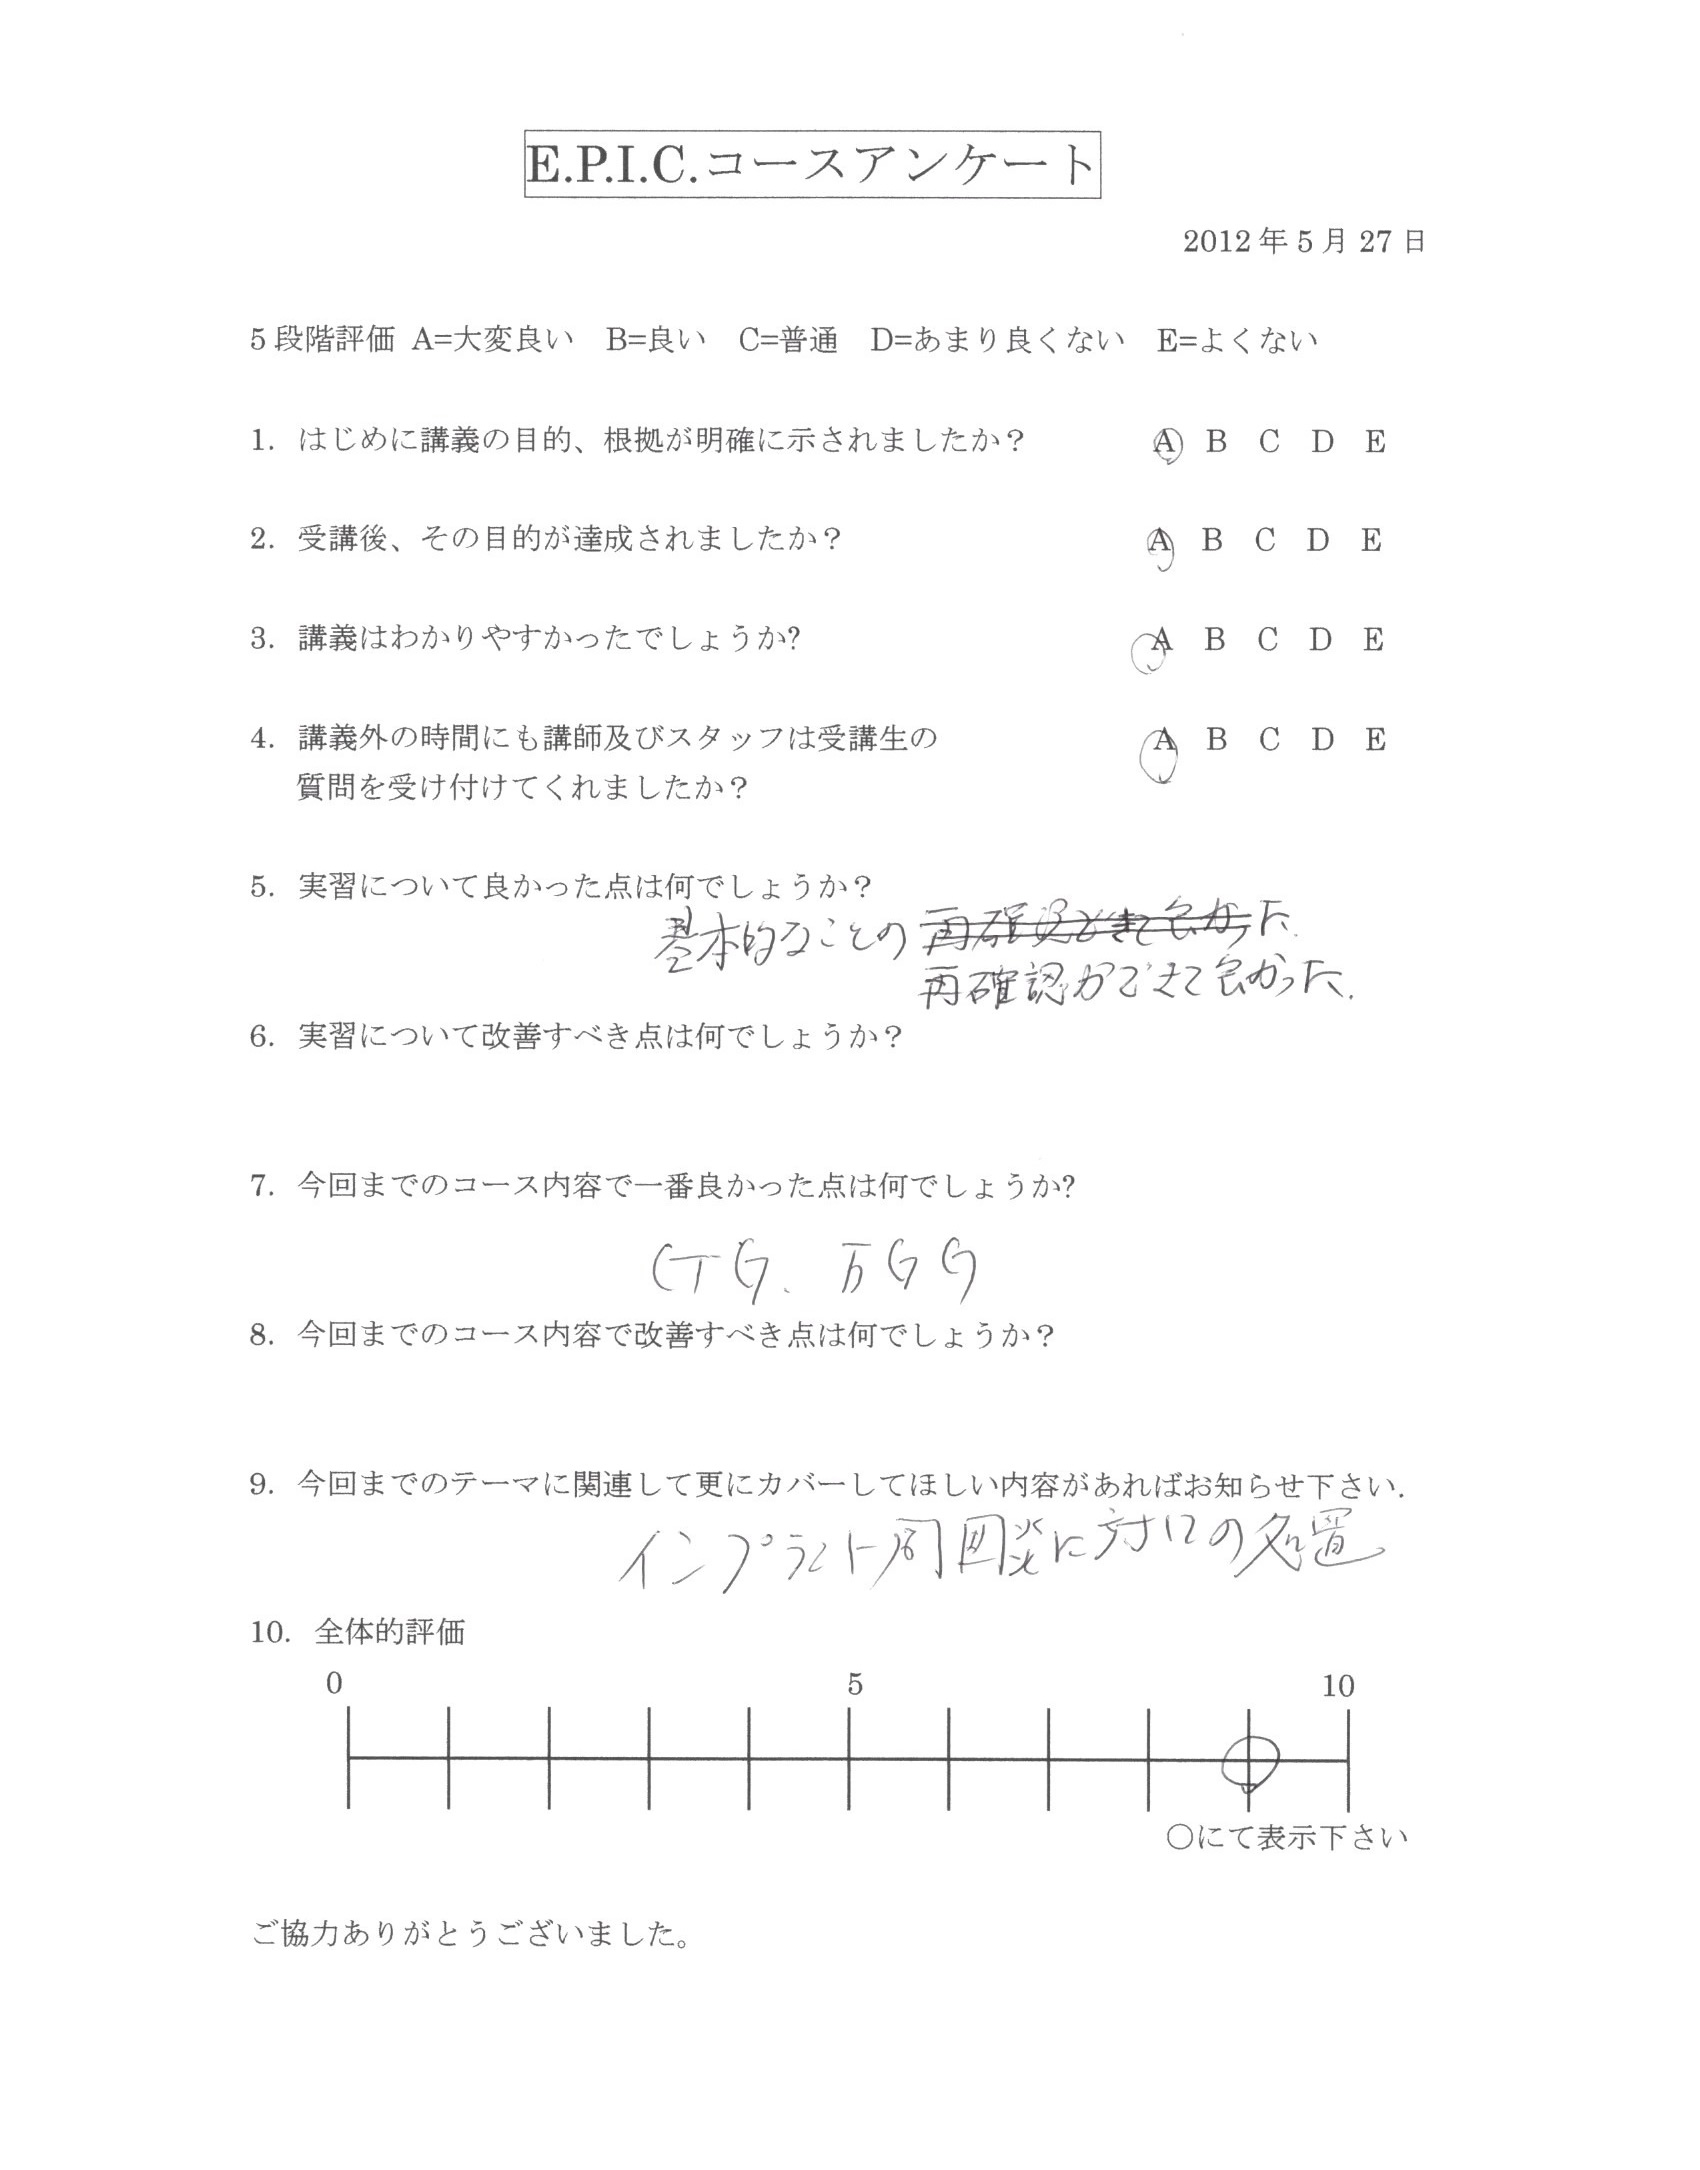 E.P.I.C.コースアンケート
2012年5月27日
5段階評価 A=大変良い B=良い C=普通 D=あまり良くない E=よくない
1. はじめに講義の目的、根拠が明確に示されましたか? A B C D E
2. 受講後、その目的が達成されましたか? A B C D E
3. 講義はわかりやすかったでしょうか? A B C D E
4. 講義外の時間にも講師及びスタッフは受講生の A B C D E
質問を受け付けてくれましたか?
5. 実習について良かった点は何でしょうか?
基本的なことの 再確認できて良かった.
再確認ができて良かった.
6. 実習について改善すべき点は何でしょうか?
7. 今回までのコース内容で一番良かった点は何でしょうか?
CTG、FGG
8. 今回までのコース内容で改善すべき点は何でしょうか?
9. 今回までのテーマに関連して更にカバーしてほしい内容があればお知らせ下さい.
インプラント周囲炎に対しての処置
10. 全体的評価
0 5 10
○にて表示下さい
ご協力ありがとうございました。